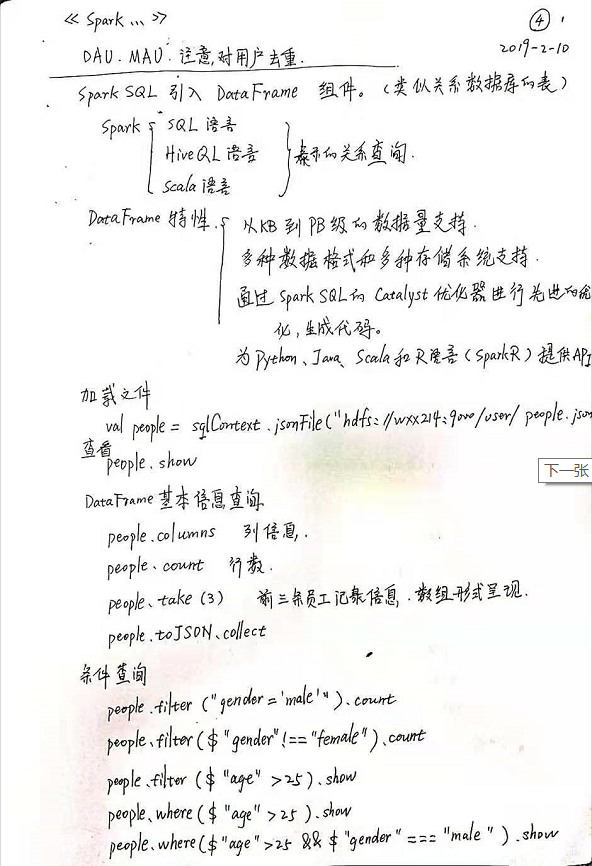 《Spark...》 ④
2019-2-10
DAU、MAU、注意,对用户去重.
Spark SQL 引入 DataFrame 组件。(类似关系数据库的表)
Spark { SQL 语言
HiveQL 语言
Scala 语言 } 表示的关系查询.
DataFrame 特性. { 从KB到PB级的数据量支持.
多种数据格式和多种存储系统支持.
通过 Spark SQL的 Catalyst 优化器进行先进的优
化,生成代码。
为Python、Java、Scala和R语言(SparkR)提供API
加载文件
val people = sqlContext.jsonFile("hdfs://wxx214:9000/user/people.json
查看
people.show
下一张
DataFrame 基本信息查询
people.columns 列信息.
people.count 行数.
people.take(3) 前三条员工记录信息.数组形式呈现.
people.toJSON.collect
条件查询
people.filter("gender='male'").count
people.filter($"gender"!=="female").count
people.filter($"age">25).show
people.where($"age">25).show
people.where($"age">25 && $"gender"==="male").show